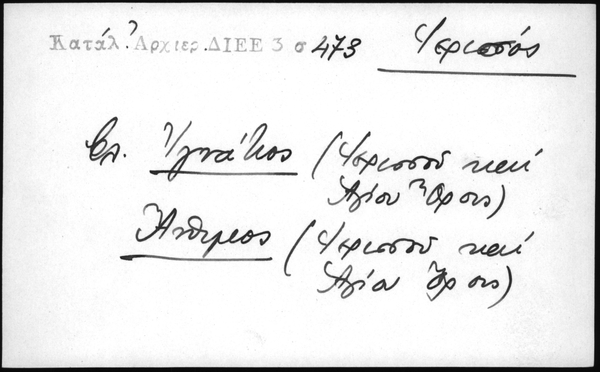 Κατάλ. Ἀρχιερ. ΔΙΕΕ 3 σ 473
Ἱερισσός
βλ. Ἰγνάτιος (Ἱερισσοῦ καί
Ἁγίου Ὄρους)
Ἄνθιμος (Ἱερισσοῦ καί
Ἁγίου Ὄρους)